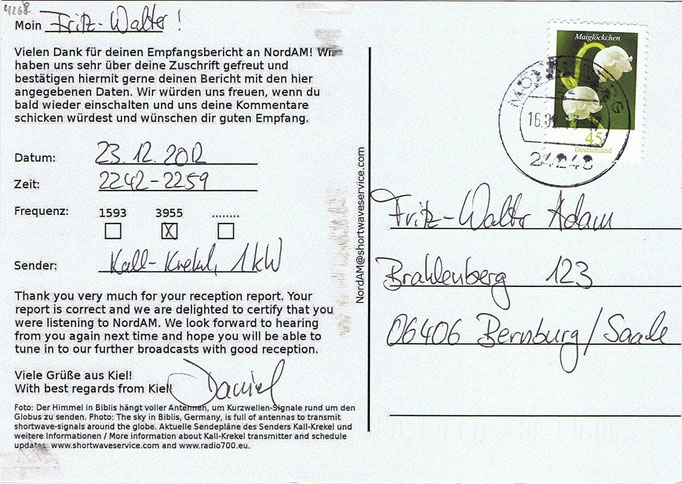 4268
Moin Fritz-Walter!
Vielen Dank für deinen Empfangsbericht an NordAM! Wir
haben uns sehr über deine Zuschrift gefreut und
bestätigen hiermit gerne deinen Bericht mit den hier
angegebenen Daten. Wir würden uns freuen, wenn du
bald wieder einschalten und uns deine Kommentare
schicken würdest und wünschen dir guten Empfang.
Datum: 23.12.2012
Zeit: 2242-2259
Frequenz: 1593 3955 ........
X
Sender: Kall-Krekel, 1kW
Thank you very much for your reception report. Your
report is correct and we are delighted to certify that you
were listening to NordAM. We look forward to hearing
from you again next time and hope you will be able to
tune in to our further broadcasts with good reception.
Viele Grüße aus Kiel!
With best regards from Kiel!
Daniel
Foto: Der Himmel in Biblis hängt voller Antennen, um Kurzwellen-Signale rund um den
Globus zu senden. Photo: The sky in Biblis, Germany, is full of antennas to transmit
shortwave-signals around the globe. Aktuelle Sendepläne des Senders Kall-Krekel und
weitere Informationen / More information about Kall-Krekel transmitter and schedule
updates: www.shortwaveservice.com and www.radio700.eu.
NordAM@shortwaveservice.com
Maiglöckchen
45
Deutschland
24248
Fritz-Walter Adam
Brahlenberg 123
06406 Bernburg/Saale